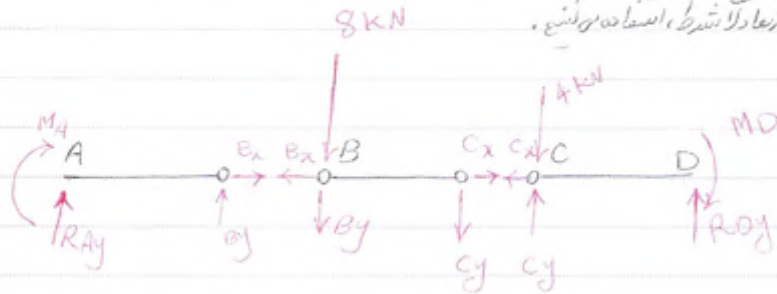 معادلات شرط، استفاده می کنیم.
8kN
4 kN
MA A Bx Bx B Cx Cx C D MD
RAy By By Cy Cy RDy